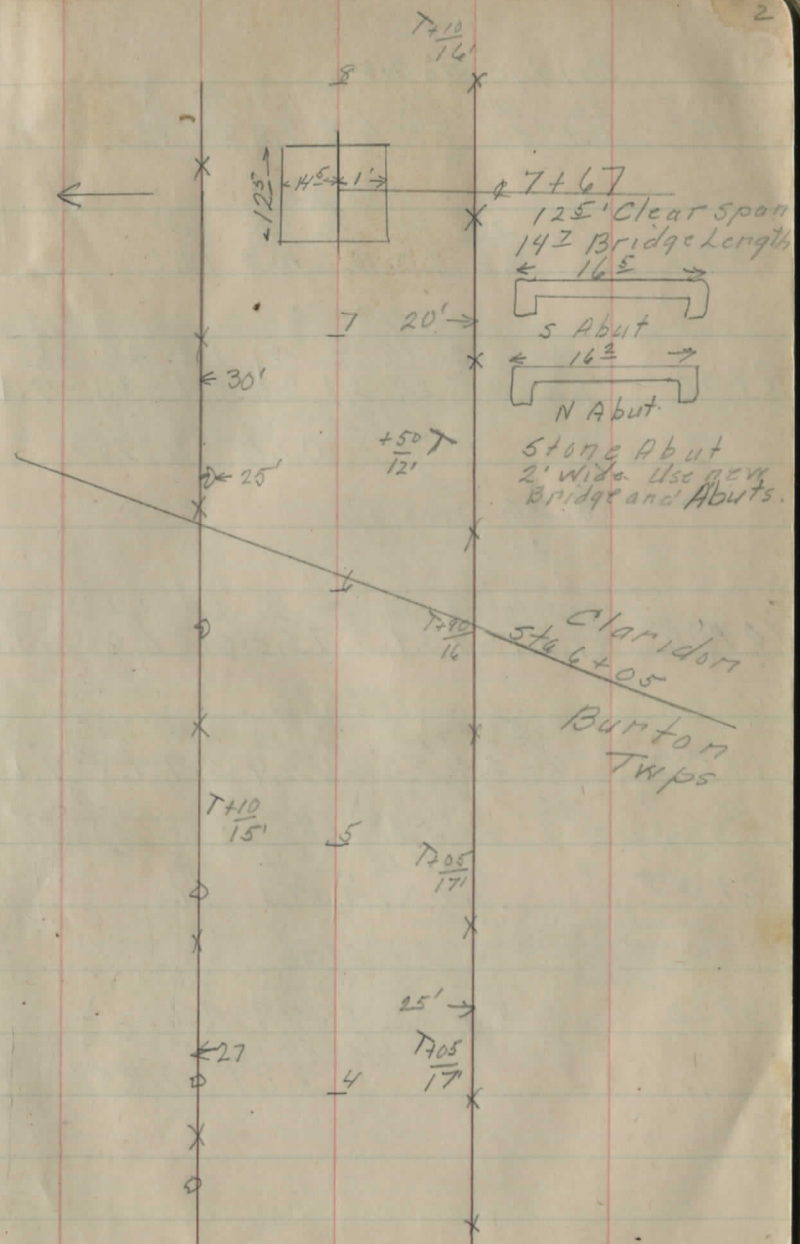 2
T+10
16'
8
12 5
14 5
1'
⅊ 7+67
12 5' Clear Span
14 7 Bridge Length
16 5
S Abut
7
20'
16 2
N Abut.
30'
+50 T
12'
Stone Abut
2' Wide Use new
Bridge and Abuts.
25'
6
T+90
16
Claridon
Sta 6+05
Burton
Twps
T+10
15'
5
T+05
17'
25'
27
T+05
17'
4